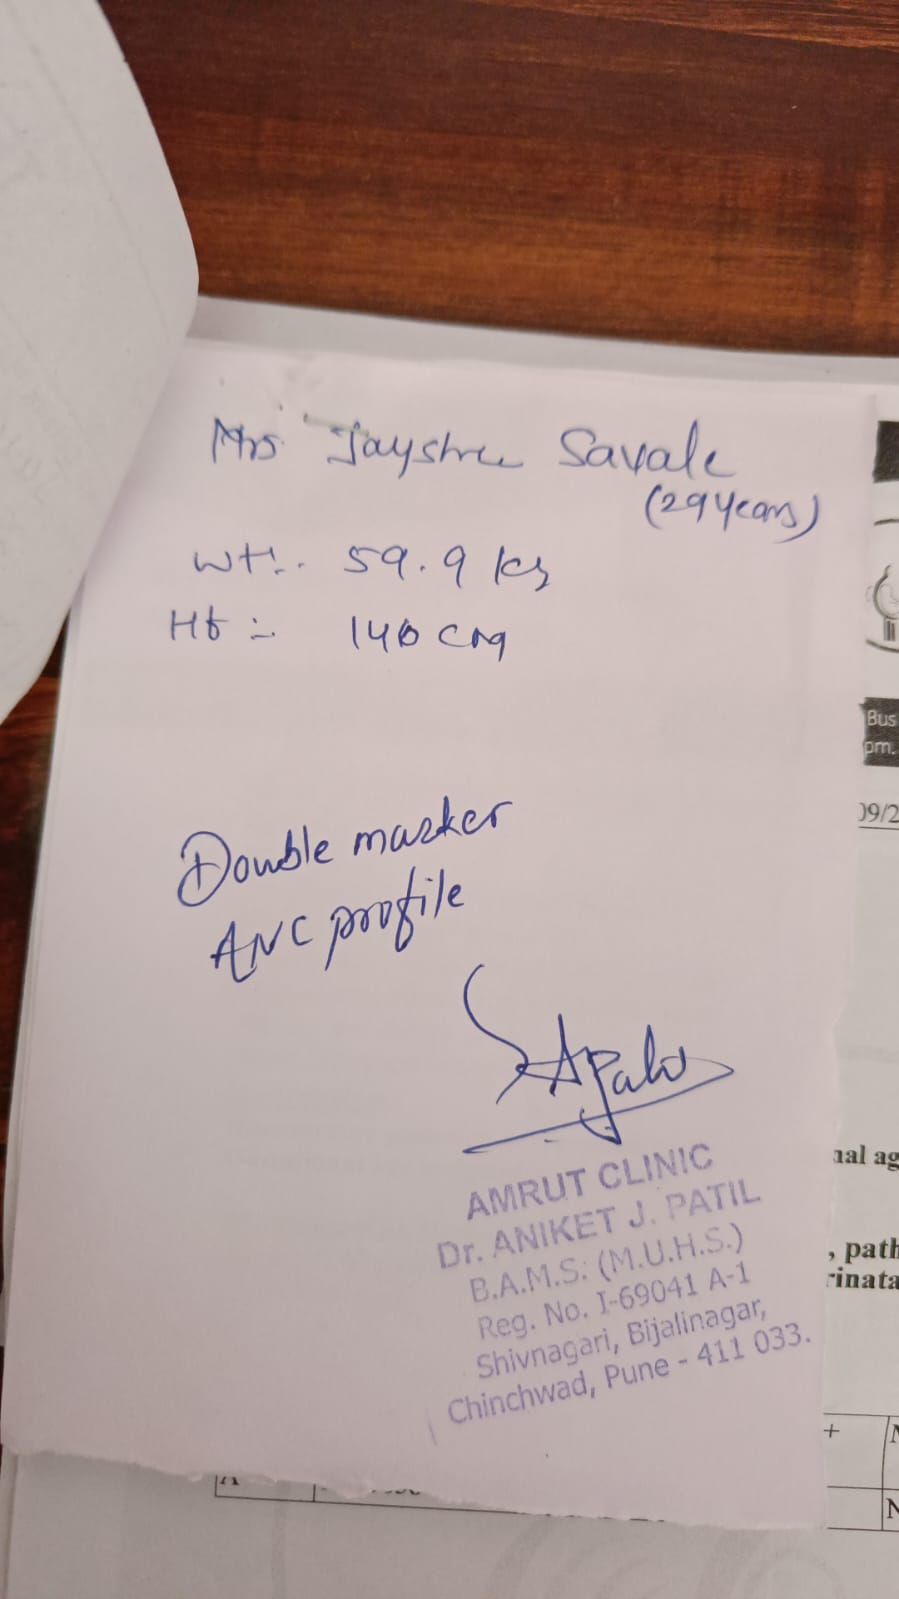 Mrs Jayshree Savale
(29 years)
Wt:- 59.9 kg
Ht :- 140 cm
Double marker
ANC profile
AMRUT CLINIC
Dr. ANIKET J. PATIL
B.A.M.S. (M.U.H.S.)
Reg. No. I-69041 A-1
Shivnagari, Bijalinagar,
Chinchwad, Pune - 411 033.
Bus
pm.
09/2
nal ag
, path
rinata
+ N
N